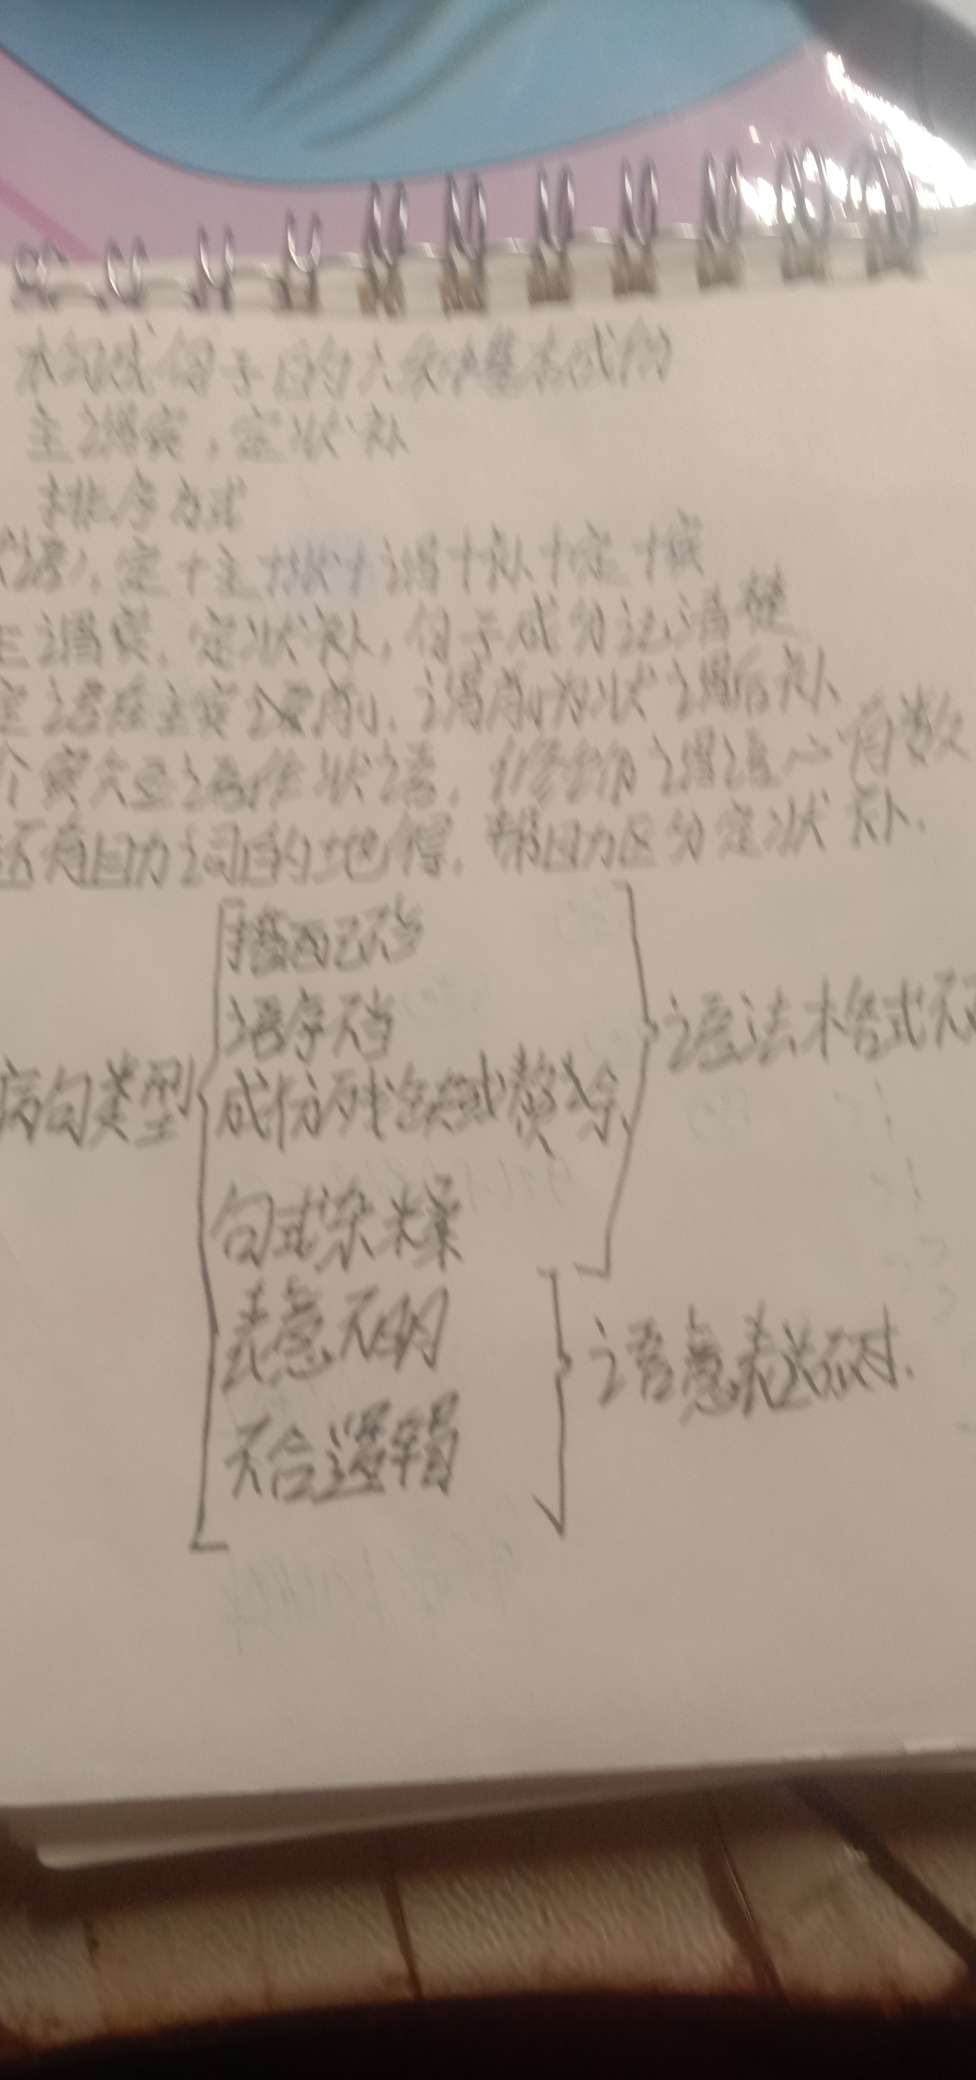 构成句子的六种基本成份
主谓宾,定状补
排序方式
定+主+状+谓+补+定+宾
主谓宾,定状补,句子成分记清楚
定语在主宾前,谓前为状谓后补
介宾作状语,修饰谓语心有数
还有助词的地得,帮助区分定状补.
病句类型
搭配不当
语序不当
成份残缺或赘余
句式杂糅
语法格式不
表意不明
不合逻辑
语意表达不对.